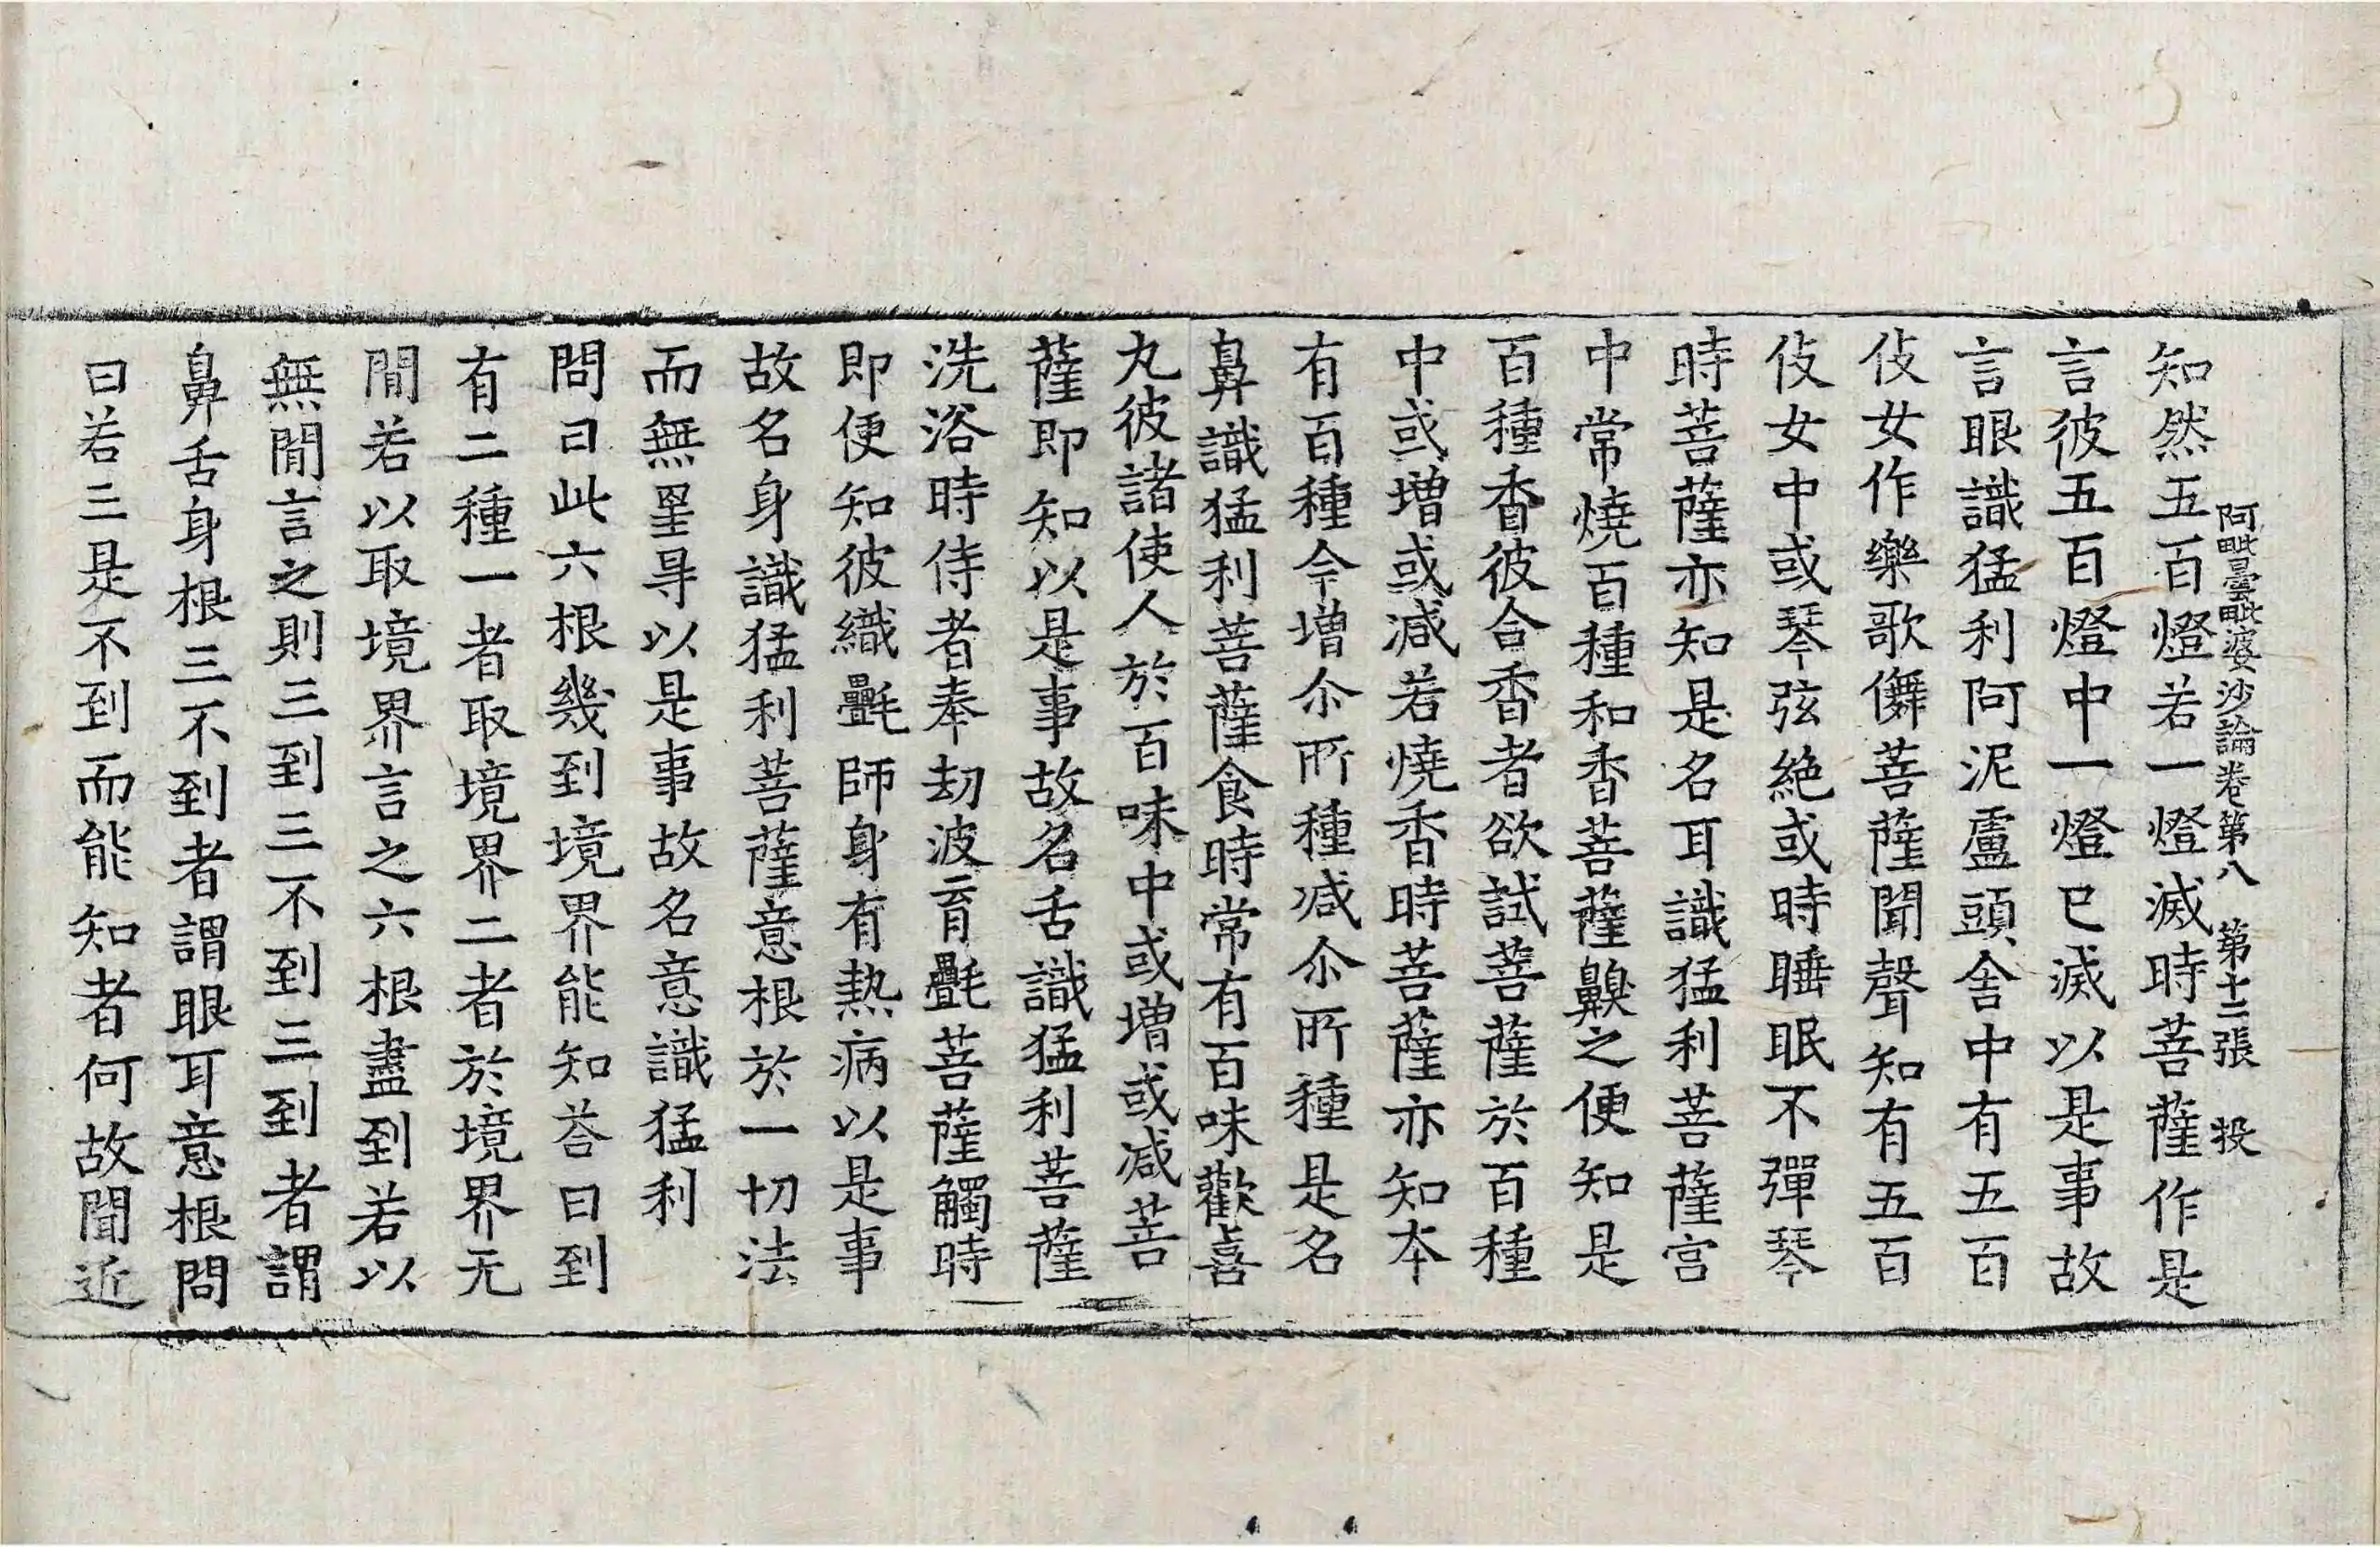 阿毗曇毗婆沙論卷第八　第十二張　投
知然五百燈若一燈滅時菩薩作是
言彼五百燈中一燈已滅以是事故
言眼識猛利阿泥盧頭舍中有五百
伎女作樂歌儛菩薩聞聲知有五百
伎女中或琴弦絶或時睡眠不彈琴
時菩薩亦知是名耳識猛利菩薩宫
中常燒百種和香菩薩齅之便知是
百種香彼合香者欲試菩薩於百種
中或增或減若燒香時菩薩亦知夲
有百種今增尒所種減尒所種是名
鼻識猛利菩薩食時常有百味歡喜
丸彼諸使人於百味中或增或減菩
薩即知以是事故名舌識猛利菩薩
洗浴時侍者奉刧波育㲲菩薩觸時
即便知彼織㲲師身有熱病以是事
故名身識猛利菩薩意根於一切法
而無罣㝵以是事故名意識猛利
問曰此六根幾到境界能知荅曰到
有二種一者取境界二者於境界无
閒若以取境界言之六根盡到若以
無閒言之則三到三不到三到者謂
鼻舌身根三不到者謂眼耳意根問
曰若三是不到而能知者何故聞近